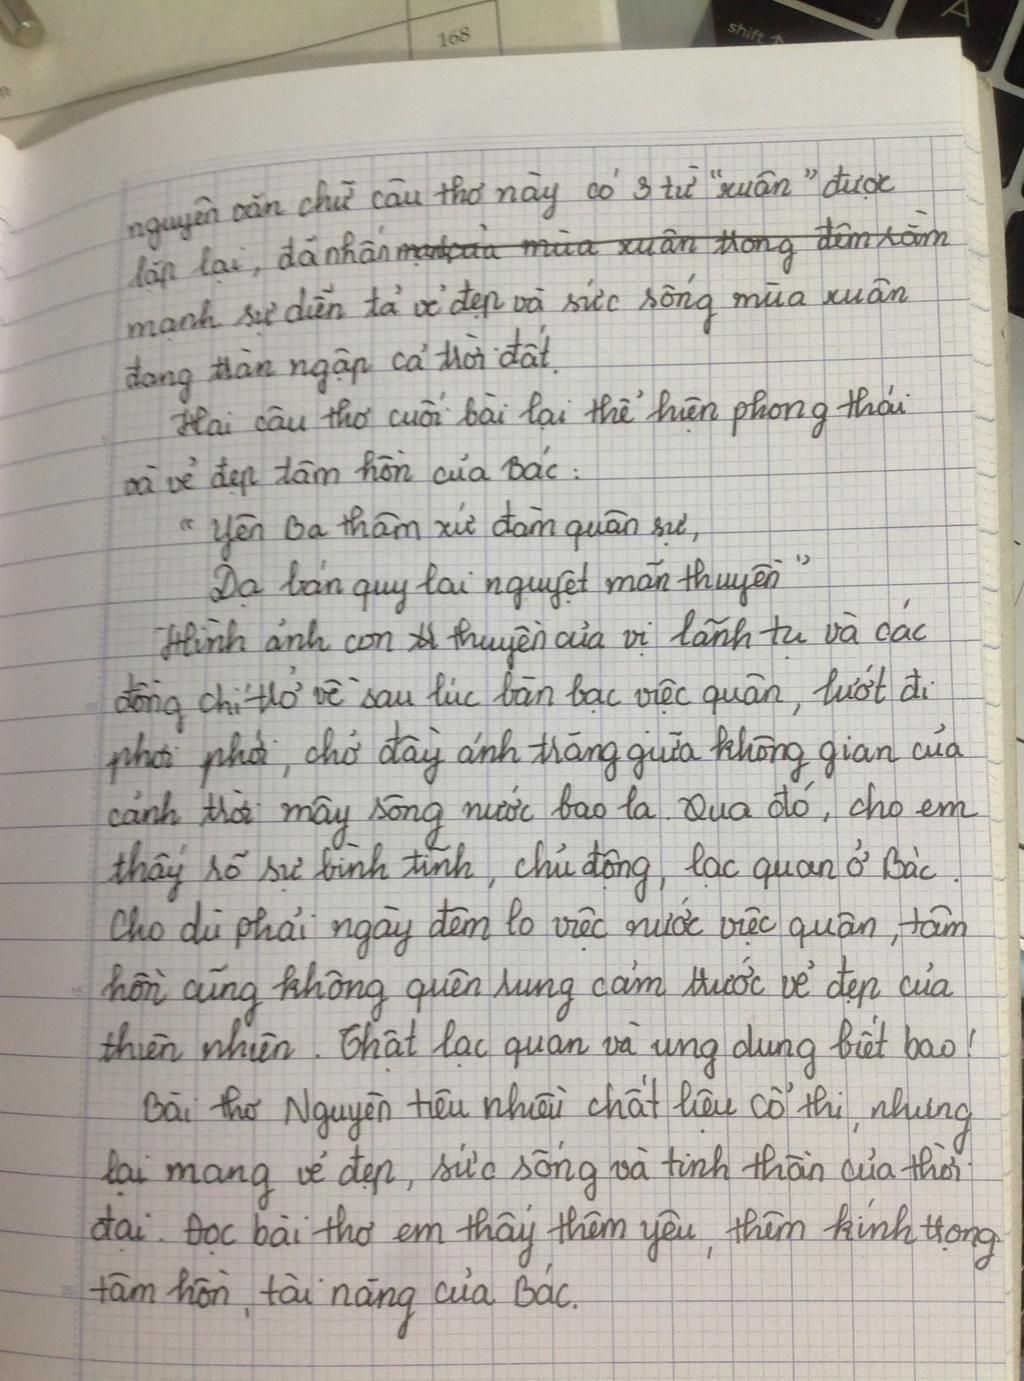 168
shift
A
nguyên văn chữ câu thơ này có 3 từ "xuân" được
lặp lại, đã nhấn mùa xuân trong đêm rằm
mạnh sự diễn tả vẻ đẹp và sức sống mùa xuân
đang tràn ngập cả trời đất.
Hai câu thơ cuối bài lại thể hiện phong thái
và vẻ đẹp tâm hồn của Bác:
"Yên Ba thâm xứ đàm quân sự,
Dạ bán quy lai nguyệt mãn thuyền"
Hình ảnh con thuyền của vị lãnh tụ và các
đồng chí trở về sau lúc bàn bạc việc quân, lướt đi
phơi phới, chở đầy ánh trăng giữa không gian của
cảnh trời mây sông nước bao la. Qua đó, cho em
thấy rõ sự bình tĩnh, chủ động, lạc quan ở Bác.
Cho dù phải ngày đêm lo việc nước việc quân, tâm
hồn cũng không quên rung cảm trước vẻ đẹp của
thiên nhiên. Thật lạc quan và ung dung biết bao!
Bài thơ Nguyên tiêu nhiều chất liệu cổ thi, nhưng
lại mang vẻ đẹp, sức sống và tinh thần của thời
đại. Đọc bài thơ em thấy thêm yêu, thêm kính trọng
tâm hồn, tài năng của Bác.